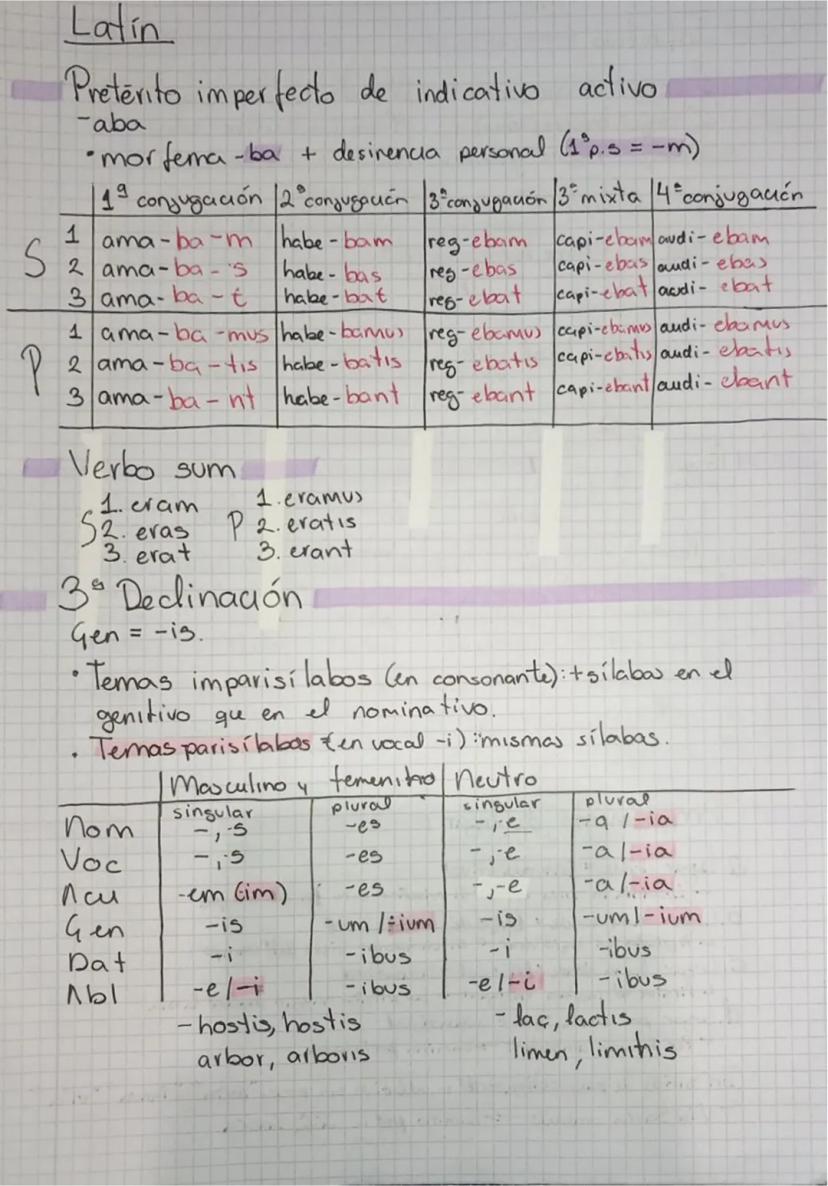 Latín
Pretérito imperfecto de indicativo activo
-aba
• morfema -ba + desinencia personal (1ª p.s = -m)
1ª conjugación 2ª conjugación 3ª conjugación 3ª mixta 4ª conjugación
S 1 ama-ba-m habe-bam reg-ebam capi-ebam audi-ebam
2 ama-ba-s habe-bas reg-ebas capi-ebas audi-ebas
3 ama-ba-t habe-bat reg-ebat capi-ebat audi-ebat
P 1 ama-ba-mus habe-bamus reg-ebamus capi-ebamus audi-ebamus
2 ama-ba-tis habe-batis reg-ebatis capi-ebatis audi-ebatis
3 ama-ba-nt habe-bant reg-ebant capi-ebant audi-ebant
Verbo sum
S 1. eram P 1. eramus
2. eras 2. eratis
3. erat 3. erant
3ª Declinación
Gen = -is.
• Temas imparisílabos (en consonante): + sílabas en el
genitivo que en el nominativo.
• Temas parisílabos (en vocal -i): mismas sílabas.
Masculino y femenino Neutro
singular plural singular plural
Nom -, -s -es -, -e -a / -ia
Voc -, -s -es -, -e -a / -ia
Acu -em (im) -es -, -e -a / -ia
Gen -is -um / -ium -is -um / -ium
Dat -i -ibus -i -ibus
Abl -e / -i -ibus -e / -i -ibus
- hostis, hostis - lac, lactis
arbor, arboris limen, liminis